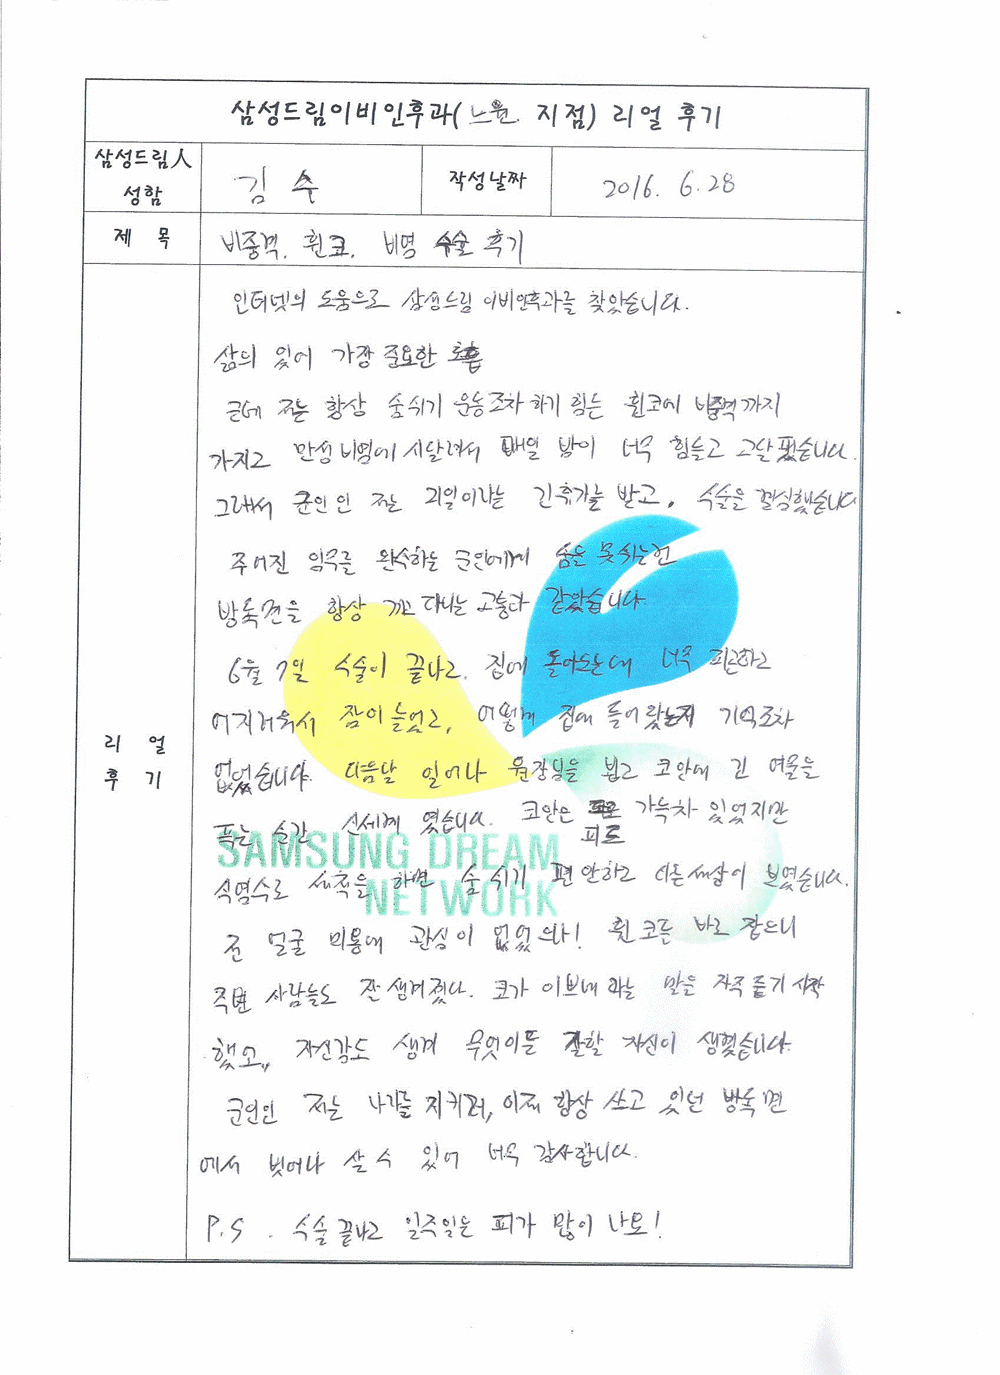 삼성드림이비인후과( 노원 지점) 리얼 후기
삼성드림人 성함
김 수
작성날짜
2016. 6. 28
제 목
비중격, 휜코, 비염 수술 후기
리 얼 후 기
인터넷의 도움으로 삼성드림 이비인후과를 찾았습니다.
삶의 있어 가장 중요한 호흡
근데 저는 항상 숨쉬기 운동조차 하기 힘든 휜코에 비중격까지
가지고 만성비염에 시달려서 매일 밤이 너무 힘들고 고달팠습니다.
그래서 군인인 저는 긴휴가를 받고, 수술을 결심했습니다
주어진 임무를 완수하는 군인에게 숨을 못쉬는건
방독면을 항상 끼고 다니는 고통과 같았습니다.
6월 7일 수술이 끝나고, 집에 돌아오는데 너무 피곤하고
어지러워서 잠이 들었고, 어떻게 집에 들어왔는지 기억조차
없었습니다. 다음날 일어나 원장님을 뵙고 코안에 긴 여물을
푸는 순간 신세계 였습니다. 코안은 피로 가득차 있었지만
SAMSUNG DREAM NETWORK
식염수로 세척을 하면 숨쉬기 편안하고 다른세상이 보였습니다.
전 얼굴 미용에 관심이 없었으나! 휜 코를 바로 잡으니
주변 사람들도 잘생겨졌다. 코가 이쁘네 라는 말을 자주 듣기 시작
했고, 자신감도 생겨 무엇이든 잘할 자신이 생겼습니다.
군인인 저는 나라를 지키며, 이제 항상 쓰고 있던 방독면
에서 벗어나 살 수 있어 너무 감사합니다.
P.S . 수술끝나고 일주일은 피가 많이 나요!